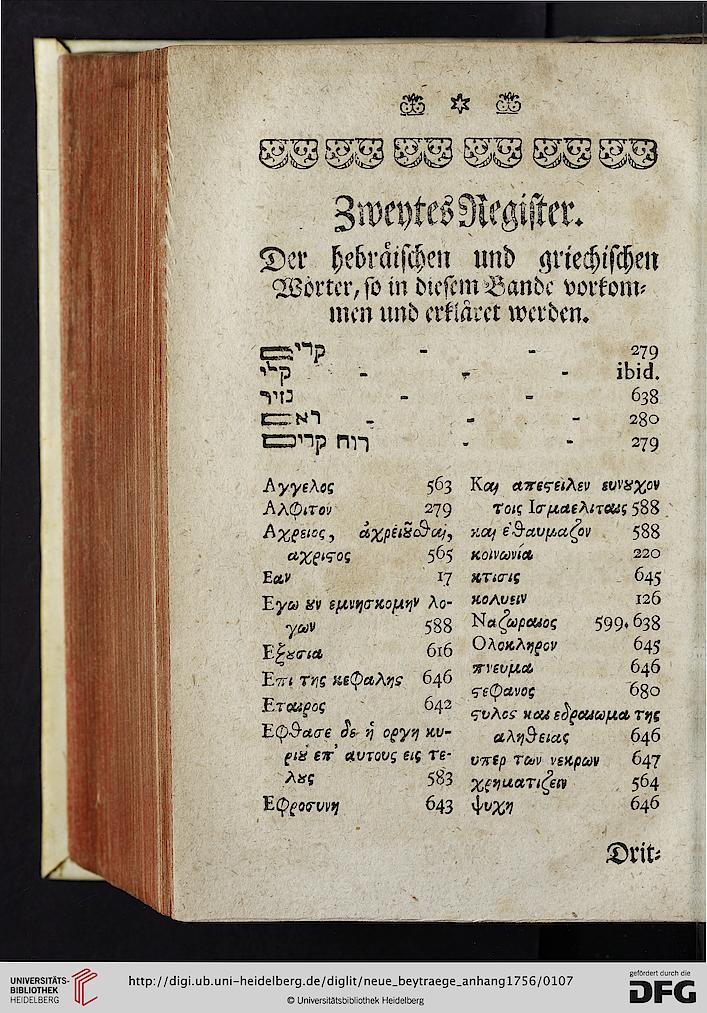 Zweytes Register.
Der hebräischen und griechischen
Wörter, so in diesem Bande vorkom-
men und erkläret werden.
קרים - - 279
קלי - - - ibid.
נזיר - - 638
ראם - - - 280
רוח קרים - - 279
Αγγελος 563
Αλφιτον 279
Αχρειος, ἀχρειȣ͂ϑαι,
αχριϛος 565
Εαν 17
Εγω ȣν εμνησκομην λο-
γων 588
Εξȣσια 616
Επι της κεφαλης 646
Εταιρος 642
Εφθασε δε ἡ οργη κυ-
ριȣ επ' αυτους εις τε-
λȣς 583
Εφροσυνη 643
Και απεϛειλεν ευνȣχον
τοις Ισμαελιταις 588
και ἐθαυμαζον 588
κοινωνία 220
κτισις 645
κολυειν 126
Ναζωραιος 599. 638
Ολοκληρον 645
πνευμα 646
ϛεφανος 680
ϛυλος και εδραιωμα της
αληθειας 646
υπερ των νεκρων 647
χρηματιζειν 564
ψυχη 646
Drit-
UNIVERSITÄTS-
BIBLIOTHEK
HEIDELBERG
http://digi.ub.uni-heidelberg.de/diglit/neue_beytraege_anhang1756/0107
© Universitätsbibliothek Heidelberg
gefördert durch die
DFG